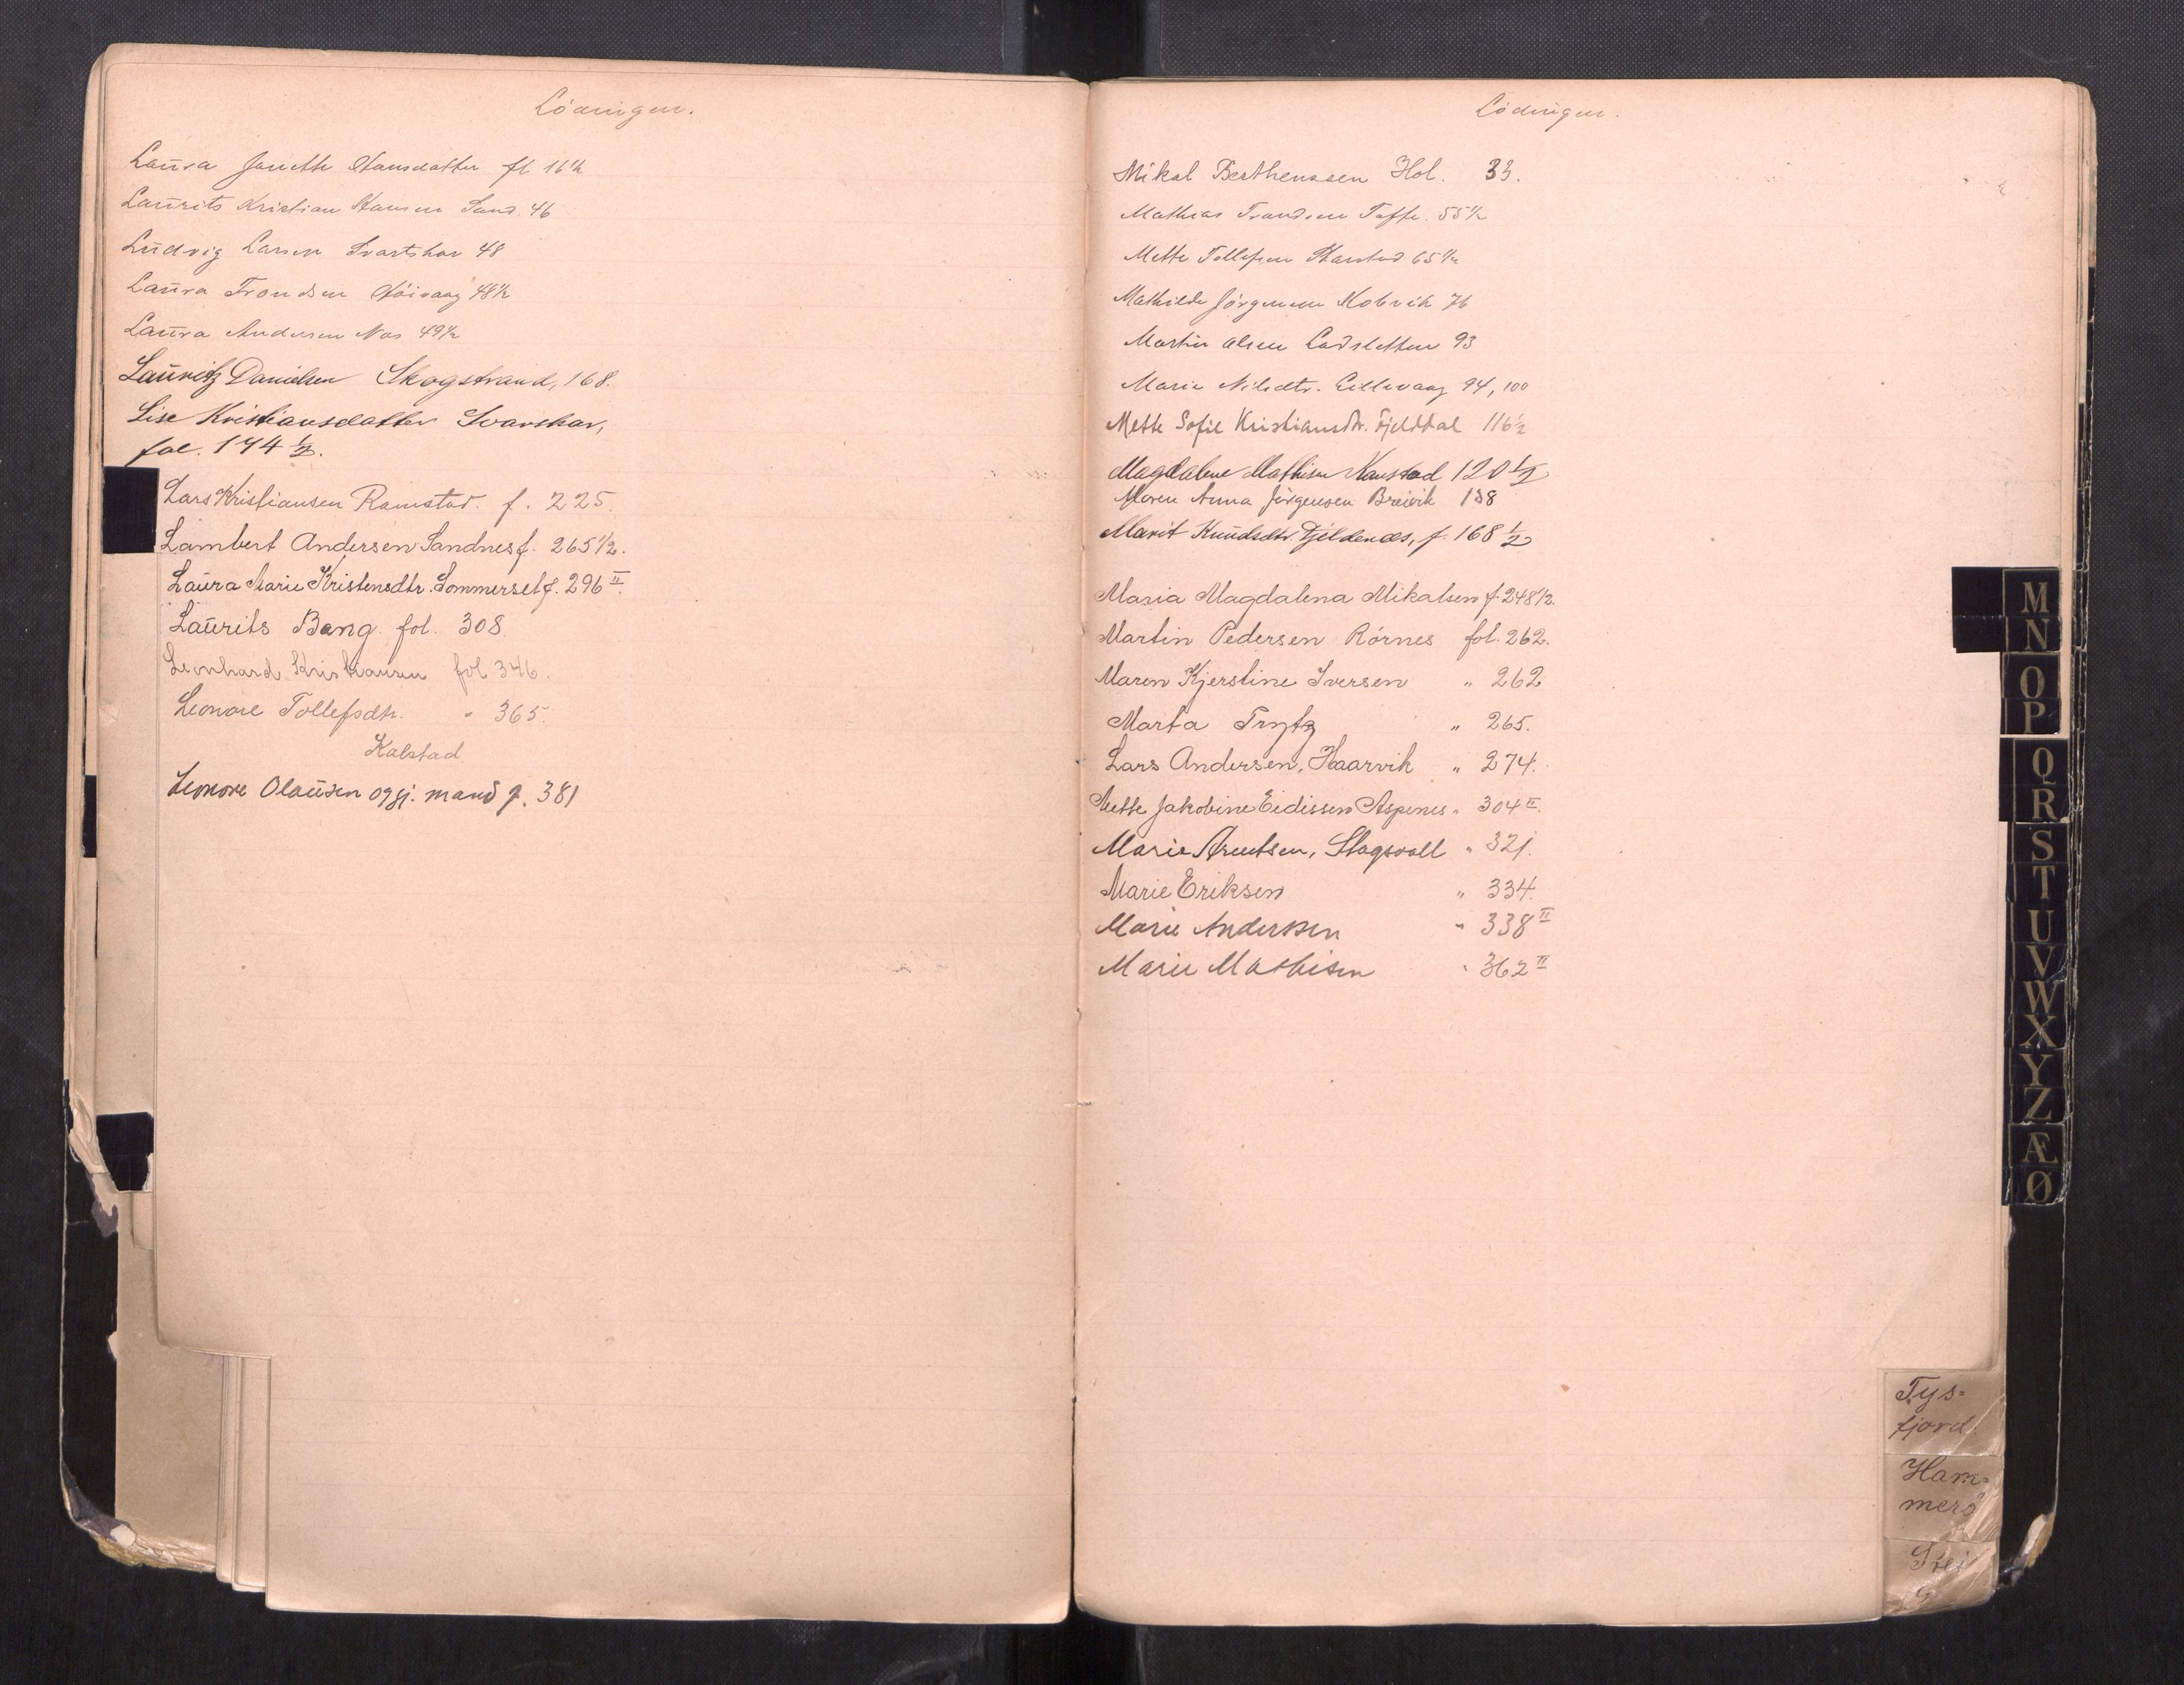 Lödingen.
Laura Janette Hansdatter fl. 16½
Laurits Kristian Hansen Sand. 46
Ludvig Larsen Svartskar 48
Laura Trondsen 48½
Laura Andersen Nes 49½
Lauritz Danielsen Skogstrand, 168.
Lise Kristiansdatter Svarskar,
fol. 174 ½.
Lars Kristiansen Ramstad. f. 225.
Lambert Andersen Sandnes f. 265 1/2.
Laura Marie Kristensdtr. Sommerset f. 296 II.
Laurits Bang fol. 308
Leonhard Kristiansen fol 346.
Leonore Tollefsdtr. " 365.
Kalstad
Leonore Olausen og gj. mand f. 381
Lödingen.
Mikal Berthenssen Hol. 33.
Mathias Trondsen Tofte. 55½
Mette Tollefsen 65½
Mathilde Jörgensen Kobvik 76
Martin Olsen Ladsletten 93
Marie Nilsdtr. 94, 100
Mette Sofie Kristiansdtr. Fjelddal 116½
Magdalene Mathisen Kanstad 120 ½
Maren Anna Jörgensen Breivik 138
Marit Knudsdtr. Tjeldenæs, f. 168 ½
Maria Magdalena Mikalsen f. 248 1/2.
Martin Pedersen Rörnes fol. 262.
Maren Kjerstine Iversen " 262
Marta Trytz " 265.
Lars Andersen, Haarvik " 274.
Mette Jakobine Eidissen Aspenes " 304 II.
Marie Arentsen, Skogsvoll " 321.
Marie Eriksen " 334.
Marie Anderssen " 338 II
Marie Mathisen " 362 II
M
N
O
P
Q
R
S
T
U
V
W
X
Y
Z
Æ
Ø
Tys=
fjord.
Ham=
merö